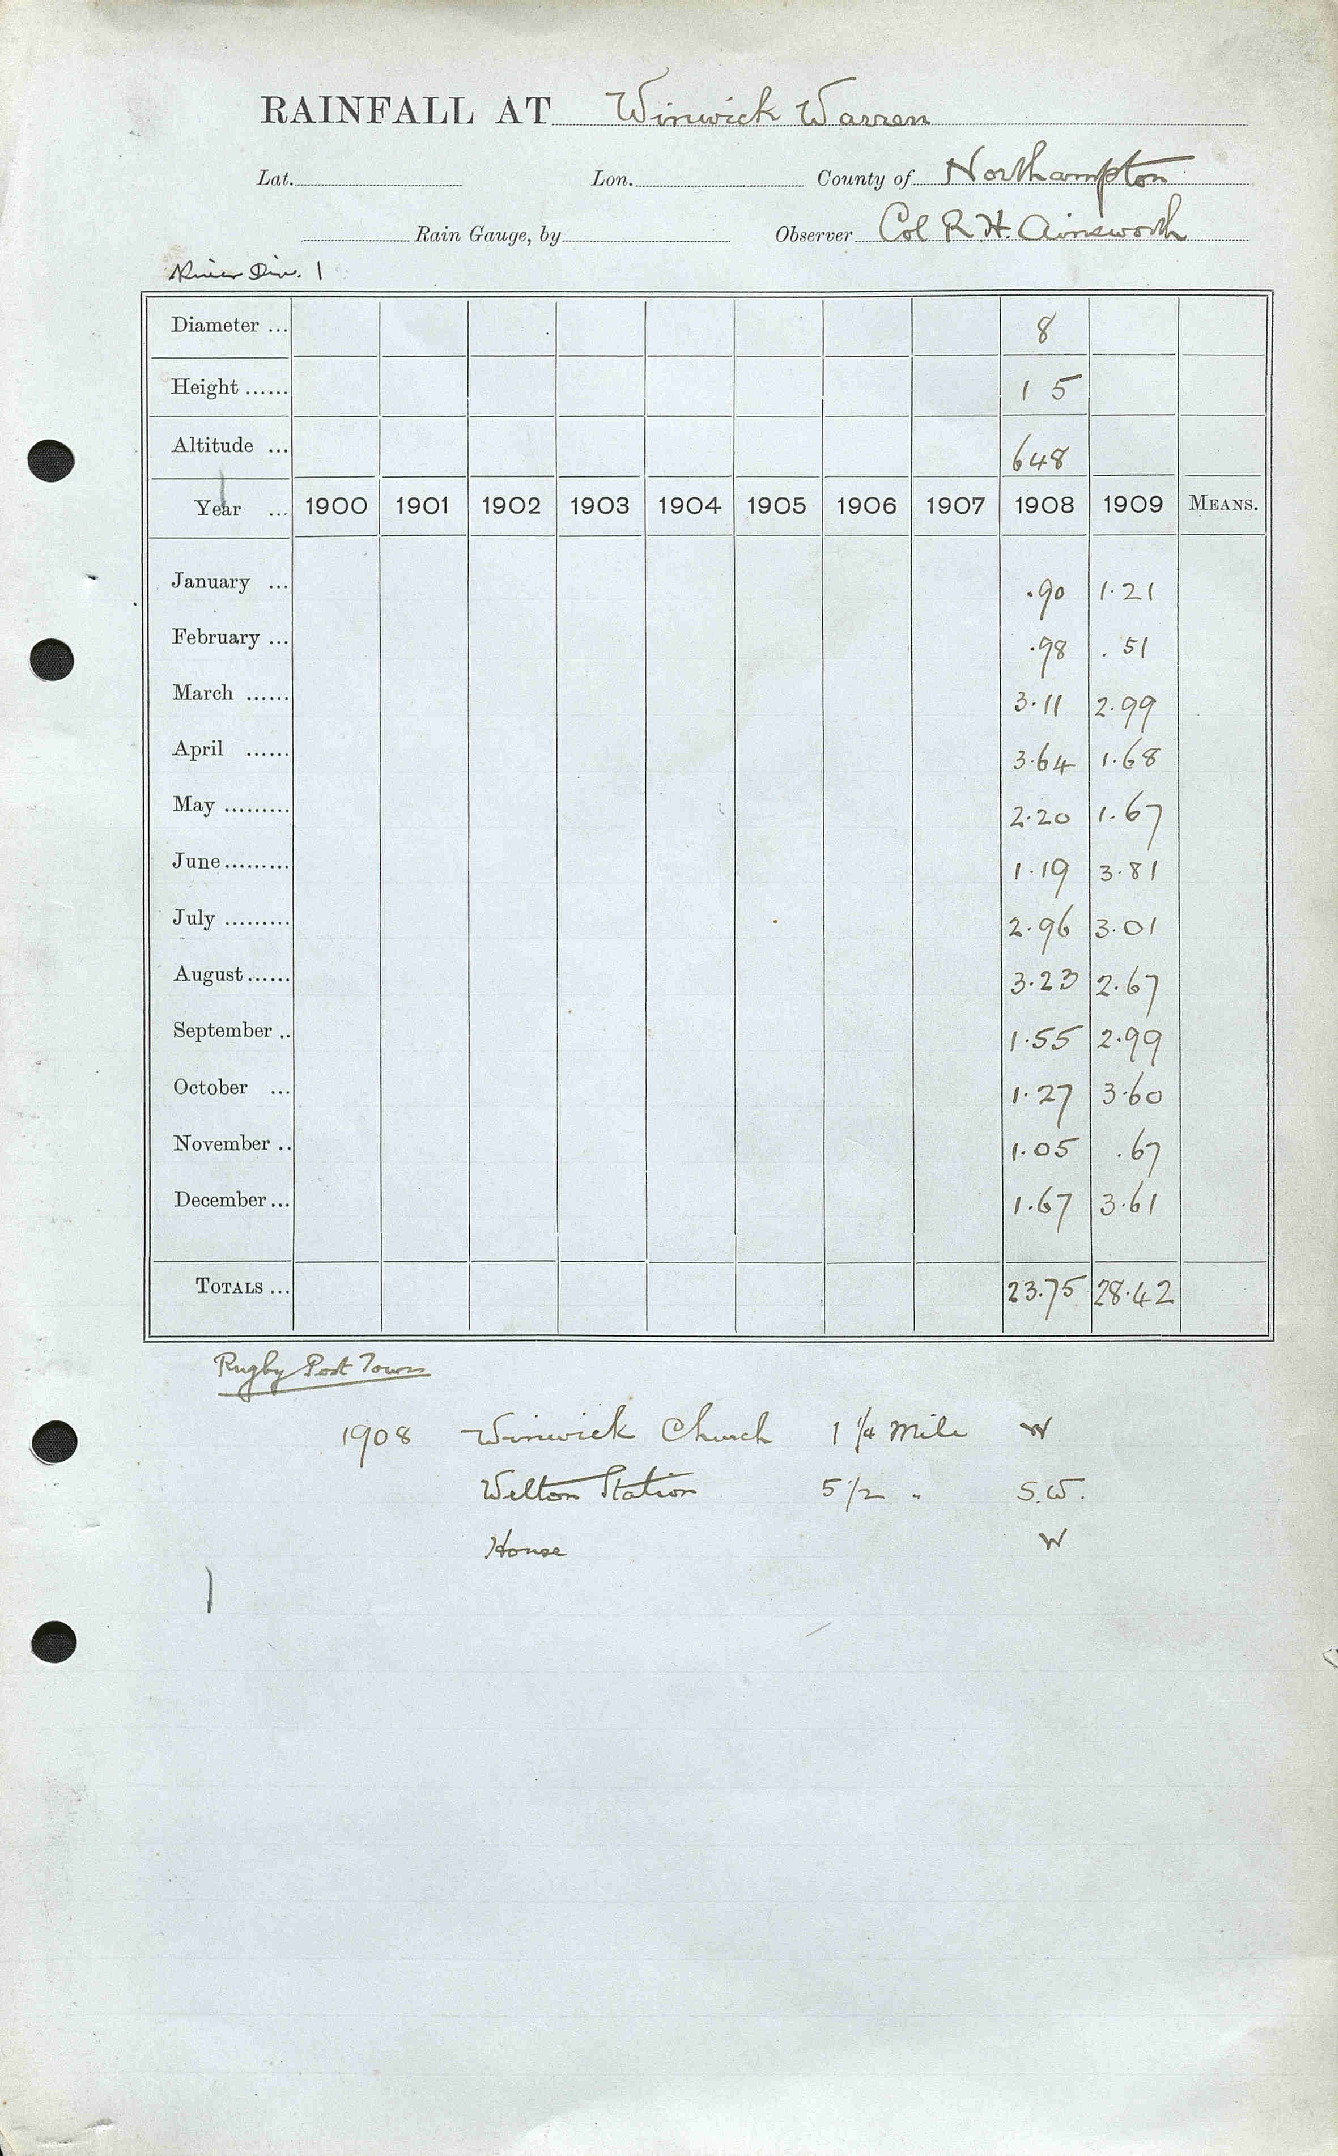 RAINFALL AT Winwick Warren
Lat. Lon. County of Northampton
Rain Gauge, by Observer Col R H. Ainsworth
River Div. 1
Diameter ... 8
Height ...... 1 5
Altitude ... 648
Year ... 1900 1901 1902 1903 1904 1905 1906 1907 1908 1909 MEANS.
January ... .90 1.21
February ... .98 .51
March ...... 3.11 2.99
April ...... 3.64 1.68
May ......... 2.20 1.67
June ......... 1.19 3.81
July ......... 2.96 3.01
August ...... 3.23 2.67
September .. 1.55 2.99
October ... 1.27 3.60
November .. 1.05 .67
December ... 1.67 3.61
TOTALS ... 23.75 28.42
Rugby Post Town
1908 Winwick Church 1 1/4 Mile W
Welton Station 5 1/2 " S.W.
House W